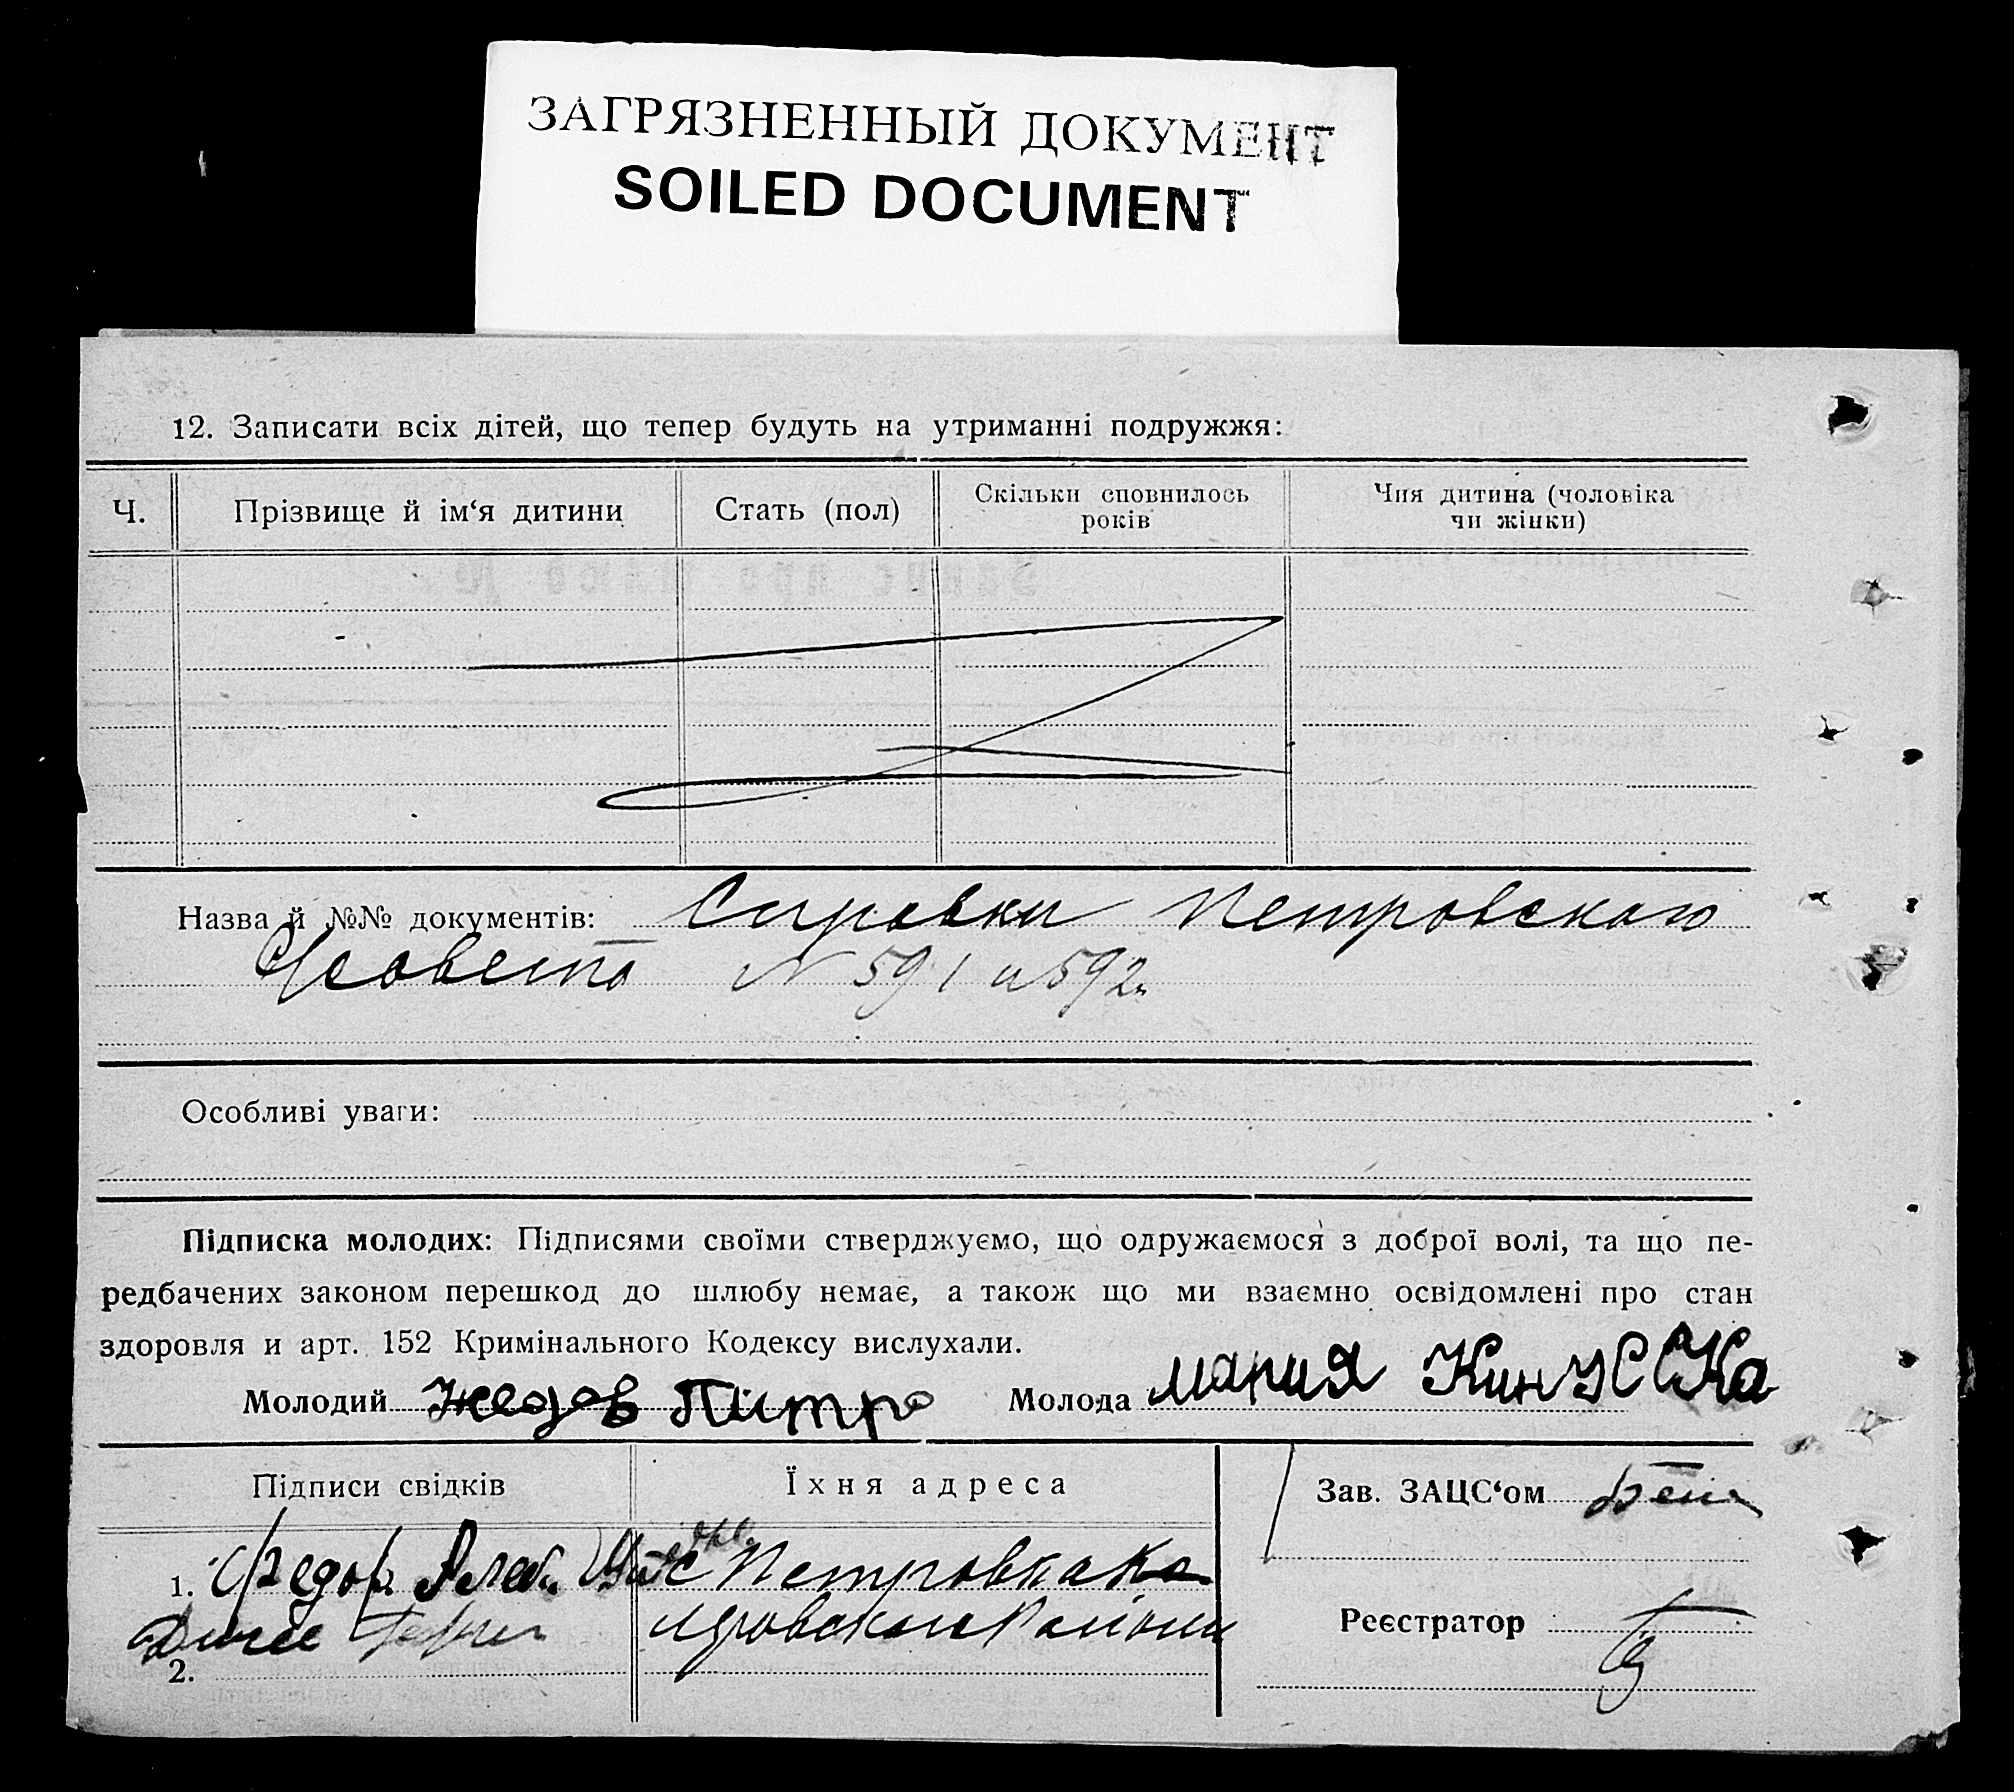 ЗАГРЯЗНЕННЫЙ ДОКУМЕНТ
SOILED DOCUMENT
12. Записати всіх дітей, що тепер будуть на утриманні подружжя:
Ч. Прізвище й ім‘я дитини Стать (пол) Скільки сповнилось років Чия дитина (чоловіка чи жінки)
Назва й №№ документів: Справки Петровского
с/совета N 591 и 592
Особливі уваги:
Підписка молодих: Підписями своїми стверджуємо, що одружаємося з доброї волі, та що пе-
редбачених законом перешкод до шлюбу немає, а також що ми взаємно освідомлені про стан
здоровля и арт. 152 Кримінального Кодексу вислухали.
Молодий Пітро Молода Мария
Підписи свідків Їхня адреса Зав. ЗАЦС‘ом
1. Федор с Петровка
района Реєстратор
2.